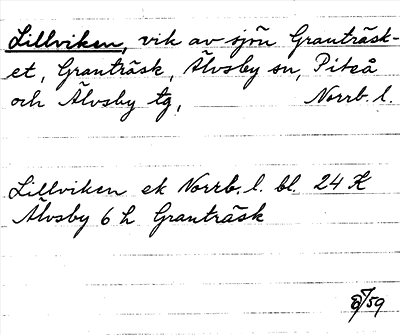 Lillviken, vik av sjön Granträsk-
et, Granträsk, Älvsby sn, Piteå
och Älvsby tg, Norrb. l.
Lillviken ek Norrb. l. bl. 24 K
Älvsby 6 h Granträsk
/59